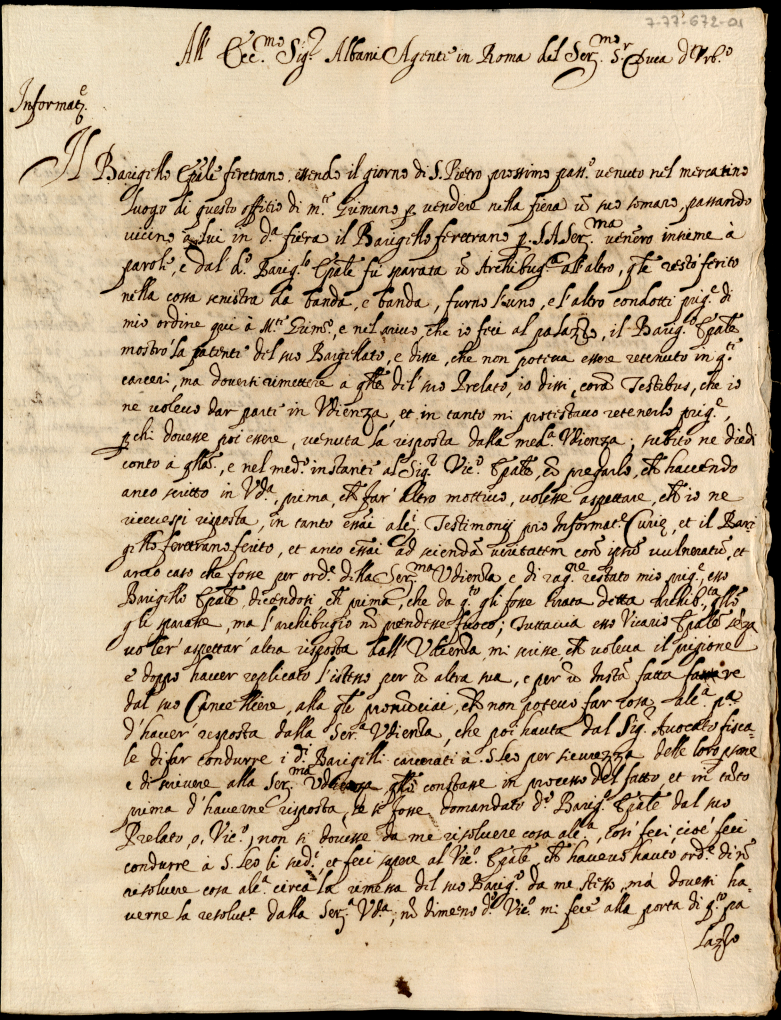 7-77-672-01
All' Ecc.mo Sig.r Albani Agente in Roma del Ser.mo S.r Duca d'Urb.o
Informat.e
Il Barigello Epāle feretrano essendo il giorno di S. Pietro prossimo pass.o venuto nel mercatino
luogo di questo offitio di m.te Grimano p. vendere nella fiera ū suo somaro, passando
vicino a lui in d.a fiera il Barigello feretrano p. S.A.Ser.ma venero insieme à
parole, e dal d.o Barig.lo Epāle fù sparata ū Archibug.a all'altro, q̄le restò ferito
nella cossa senistra da banda, e banda, furno l'uno, e l'altro condotti prig.e di
mio ordine qui à M.te Grim.o, e nel arivo, che io feci al palazzo, il Barig.lo Epāle
mostrò la patente del suo Bargellato, e disse, che non poteva essere retenuto in q.ti
carceri, ma doversi rimettere à q̄lle del suo Prelato, io dissi, corā Testibus, che io
ne volevo dar parte in Udienza, et in tanto mi protestavo retenerlo prig.e,
p̄che dovesse poi essere, venuta la risposta dalla med.a Udienza; subito ne diedi
conto à q̄lla, e nel med.o instante al Sig.r Vic.o Epāle, cō pregarlo, ch̄ havendo
anco scritto in Ud.a, prima, ch̄ far' altro mottivo, volesse aspettare, ch̄ io ne
ricevessi risposta, in tanto essāi ale.i Testimonij pro Informat.e Curię, et il Bari
gello feretrano ferito, et anco essāi ad sciendā veritatem corā ipsū vulneratū, et
in caso che fosse per ord.e della Ser.ma Udienza, e di rag.ne restato mio prig.e, esso
Barigello Epāle, dicendosi ch̄ prima, che da q.to gli fosse tirata detta Archib.ta, q̄llo
gli sparasse, ma l'archibugio nō prendesse fuoco; Tuttavia esso Vicario Epāle sēza
voler' aspettar altra risposta dall' Udienza, mi scrisse ch̄ voleva il prigione
e doppo haver replicato l'istesso per ū altra sua, e per ū Instā fatta fare
dal suo Cancelliere, alla q̄le pronunciai, ch̄ non potevo far cosa ale.a p.a
d'haver' risposta dalla Ser.a Udienza, che poi hauta dal Sig.r Avocato fisca-
le di far condurre i d.i Barigelli carcerati à S. Leo per sicurezza delle loro p̄sone
e di scrivere alla Ser.ma Udienza q̄llo constasse in processo del fatto et in tāto
prima d'haverne risposta, se si fosse domandato d.o Barig.o Epāle dal suo
Prelato, o, Vic.o, non si dovesse da me risolvere cosa ale.a, così feci cioè feci
condurre à S. Leo li sud.i et feci sapere al Vic.o Epāle, ch̄ havevo hauto ord.e di nō
resolvere cosa ale.a circa la rimessa del suo Barig.o da me stesso, mà dovessi ha-
verne la resolut.e dalla Ser.a Ud.a; nō dimeno d.o Vic.o mi fece alla porta di q.to pa
lazzo